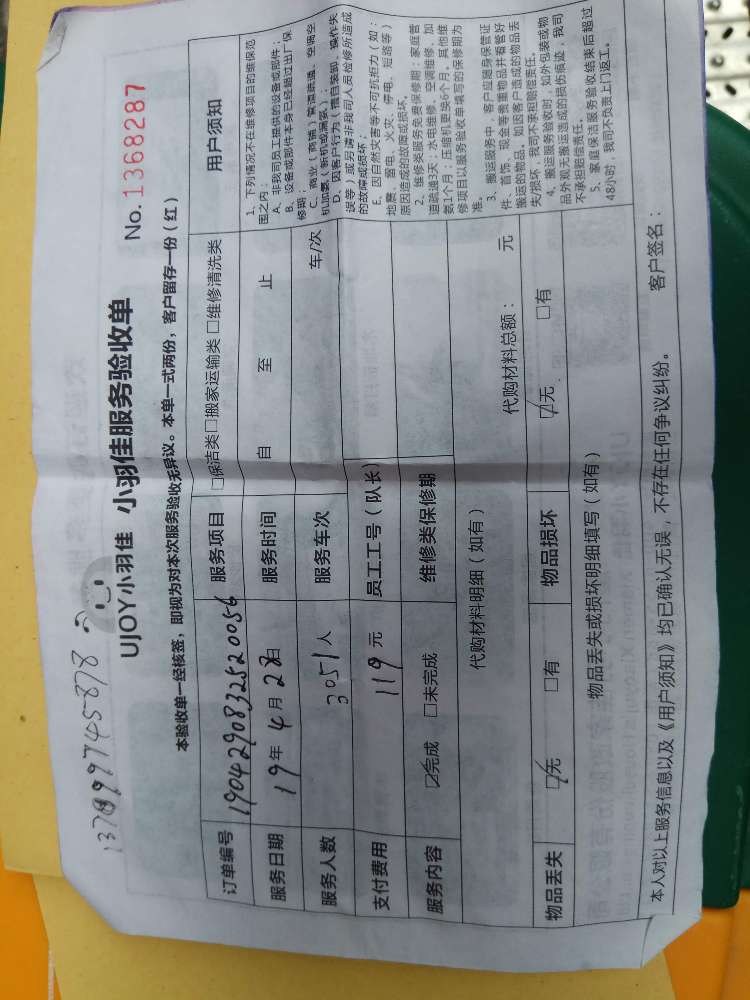 UJOY小羽佳 小羽佳服务验收单
No.1368287
本验收单一经核签，即视为对本次服务验收无异议。本单一式两份，客户留存一份（红）
订单编号 190429083252005 服务项目 □保洁类□搬家运输类 □维修清洗类 用户须知
服务日期 19年 4月 28日 服务时间 自 至 止
服务人数 3051人 服务车次 车/次
支付费用 119元 员工工号（队长）
服务内容 ☑完成 □未完成 维修类保修期
1、下列情况不在维修项目的维保范
围之内：
A、非我司员工提供的设备或部件；
B、设备或部件本身已经超过出厂保
修期；
C、商业（商铺）管道疏通、空调空
机加氨（新机或漏氨）；
D、因客户行为（擅自装卸、操作失
误等）或另请非我司人员检修所造成
的故障或损坏；
E、因自然灾害等不可抗拒力（如：
地震、雷电、火灾、停电、短路等）
原因造成的故障或损坏。
2、维修类服务免费保修期：家庭管
道疏通3天；水电维修、空调维修、加
氨1个月；压缩机更换6个月。其他维
修项目以服务验收单填写的保修期为
准。
3、搬运服务中，客户应随身保管证
件、首饰、现金等贵重物品并看管好
搬运的物品。如因客户造成的物品丢
失/损坏，我司不承担赔偿责任。
4、搬运服务验收时，如外包装或物
品外观无搬运造成的损伤痕迹，我司
不承担赔偿责任。
5、家庭保洁服务验收结束后超过
48小时，我司不负责上门返工。
代购材料明细（如有） 代购材料总额： 元
物品丢失 ☑无 □有 物品损坏 ☑无 □有
物品丢失或损坏明细填写（如有）
本人对以上服务信息以及《用户须知》均已确认无误，不存在任何争议纠纷。 客户签名：